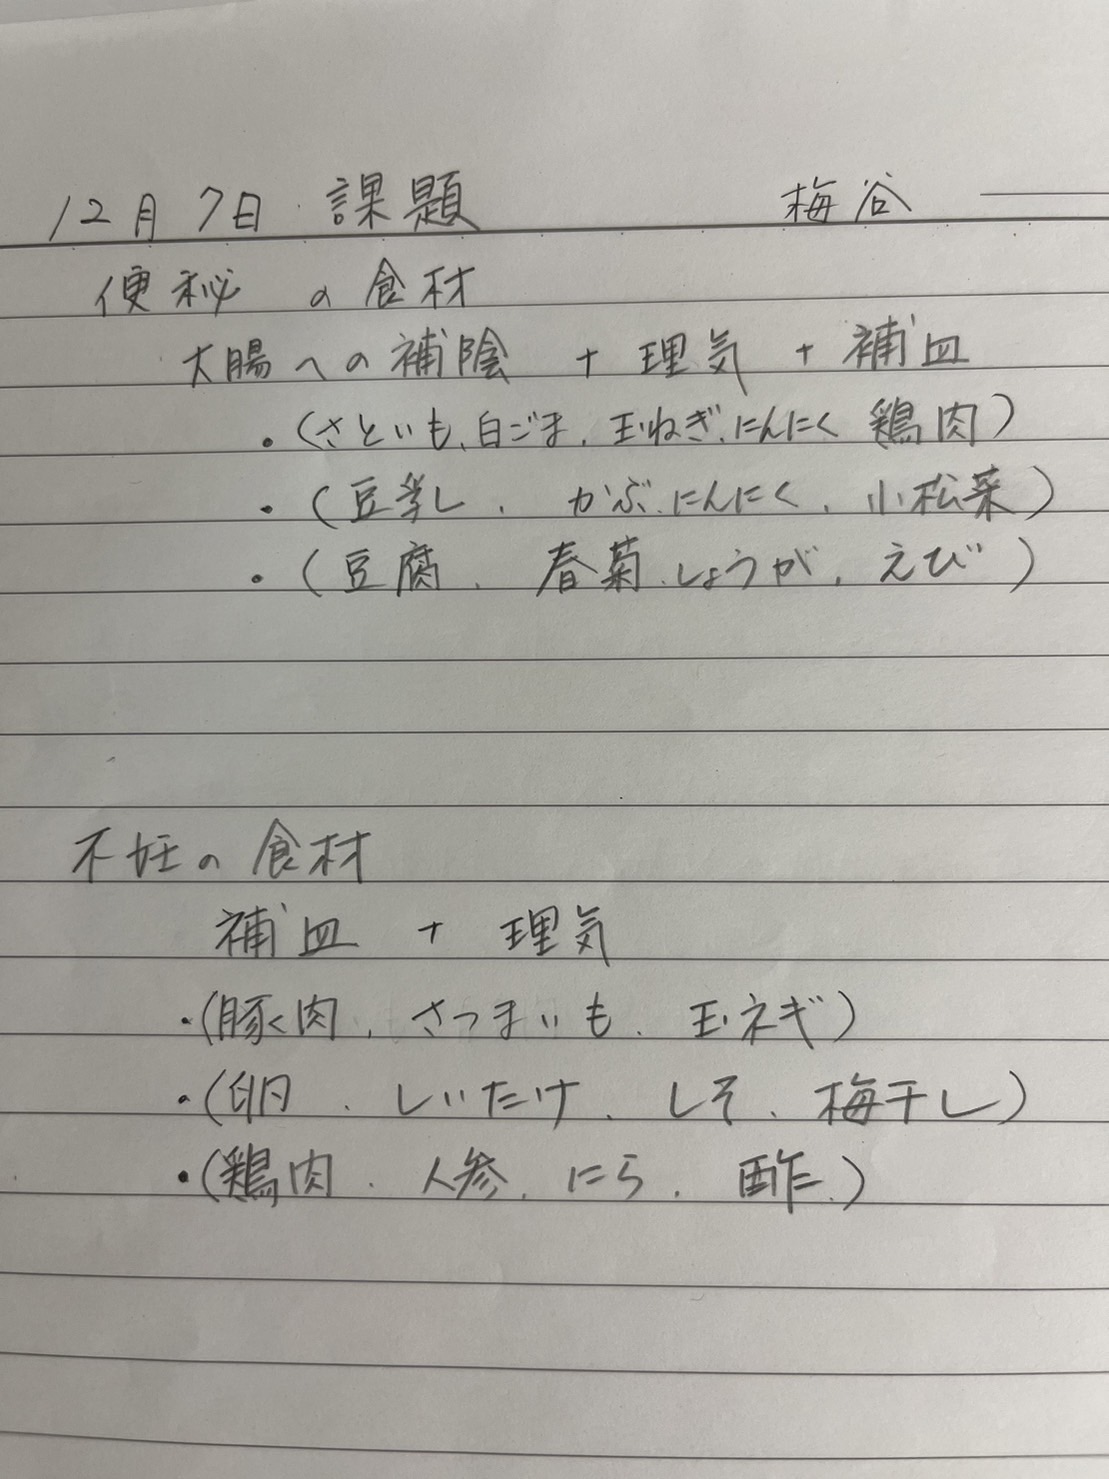 12月7日 課題 梅谷
便秘 の 食材
大腸への補陰 + 理気 + 補血
・(さといも、白ごま、玉ねぎ、にんにく 鶏肉)
・(豆乳、かぶ、にんにく、小松菜)
・(豆腐、春菊、しょうが、えび)
不妊の食材
補血 + 理気
・(豚肉、さつまいも、玉ネギ)
・(卵、しいたけ、しそ、梅干し)
・(鶏肉、人参、にら、酢、)